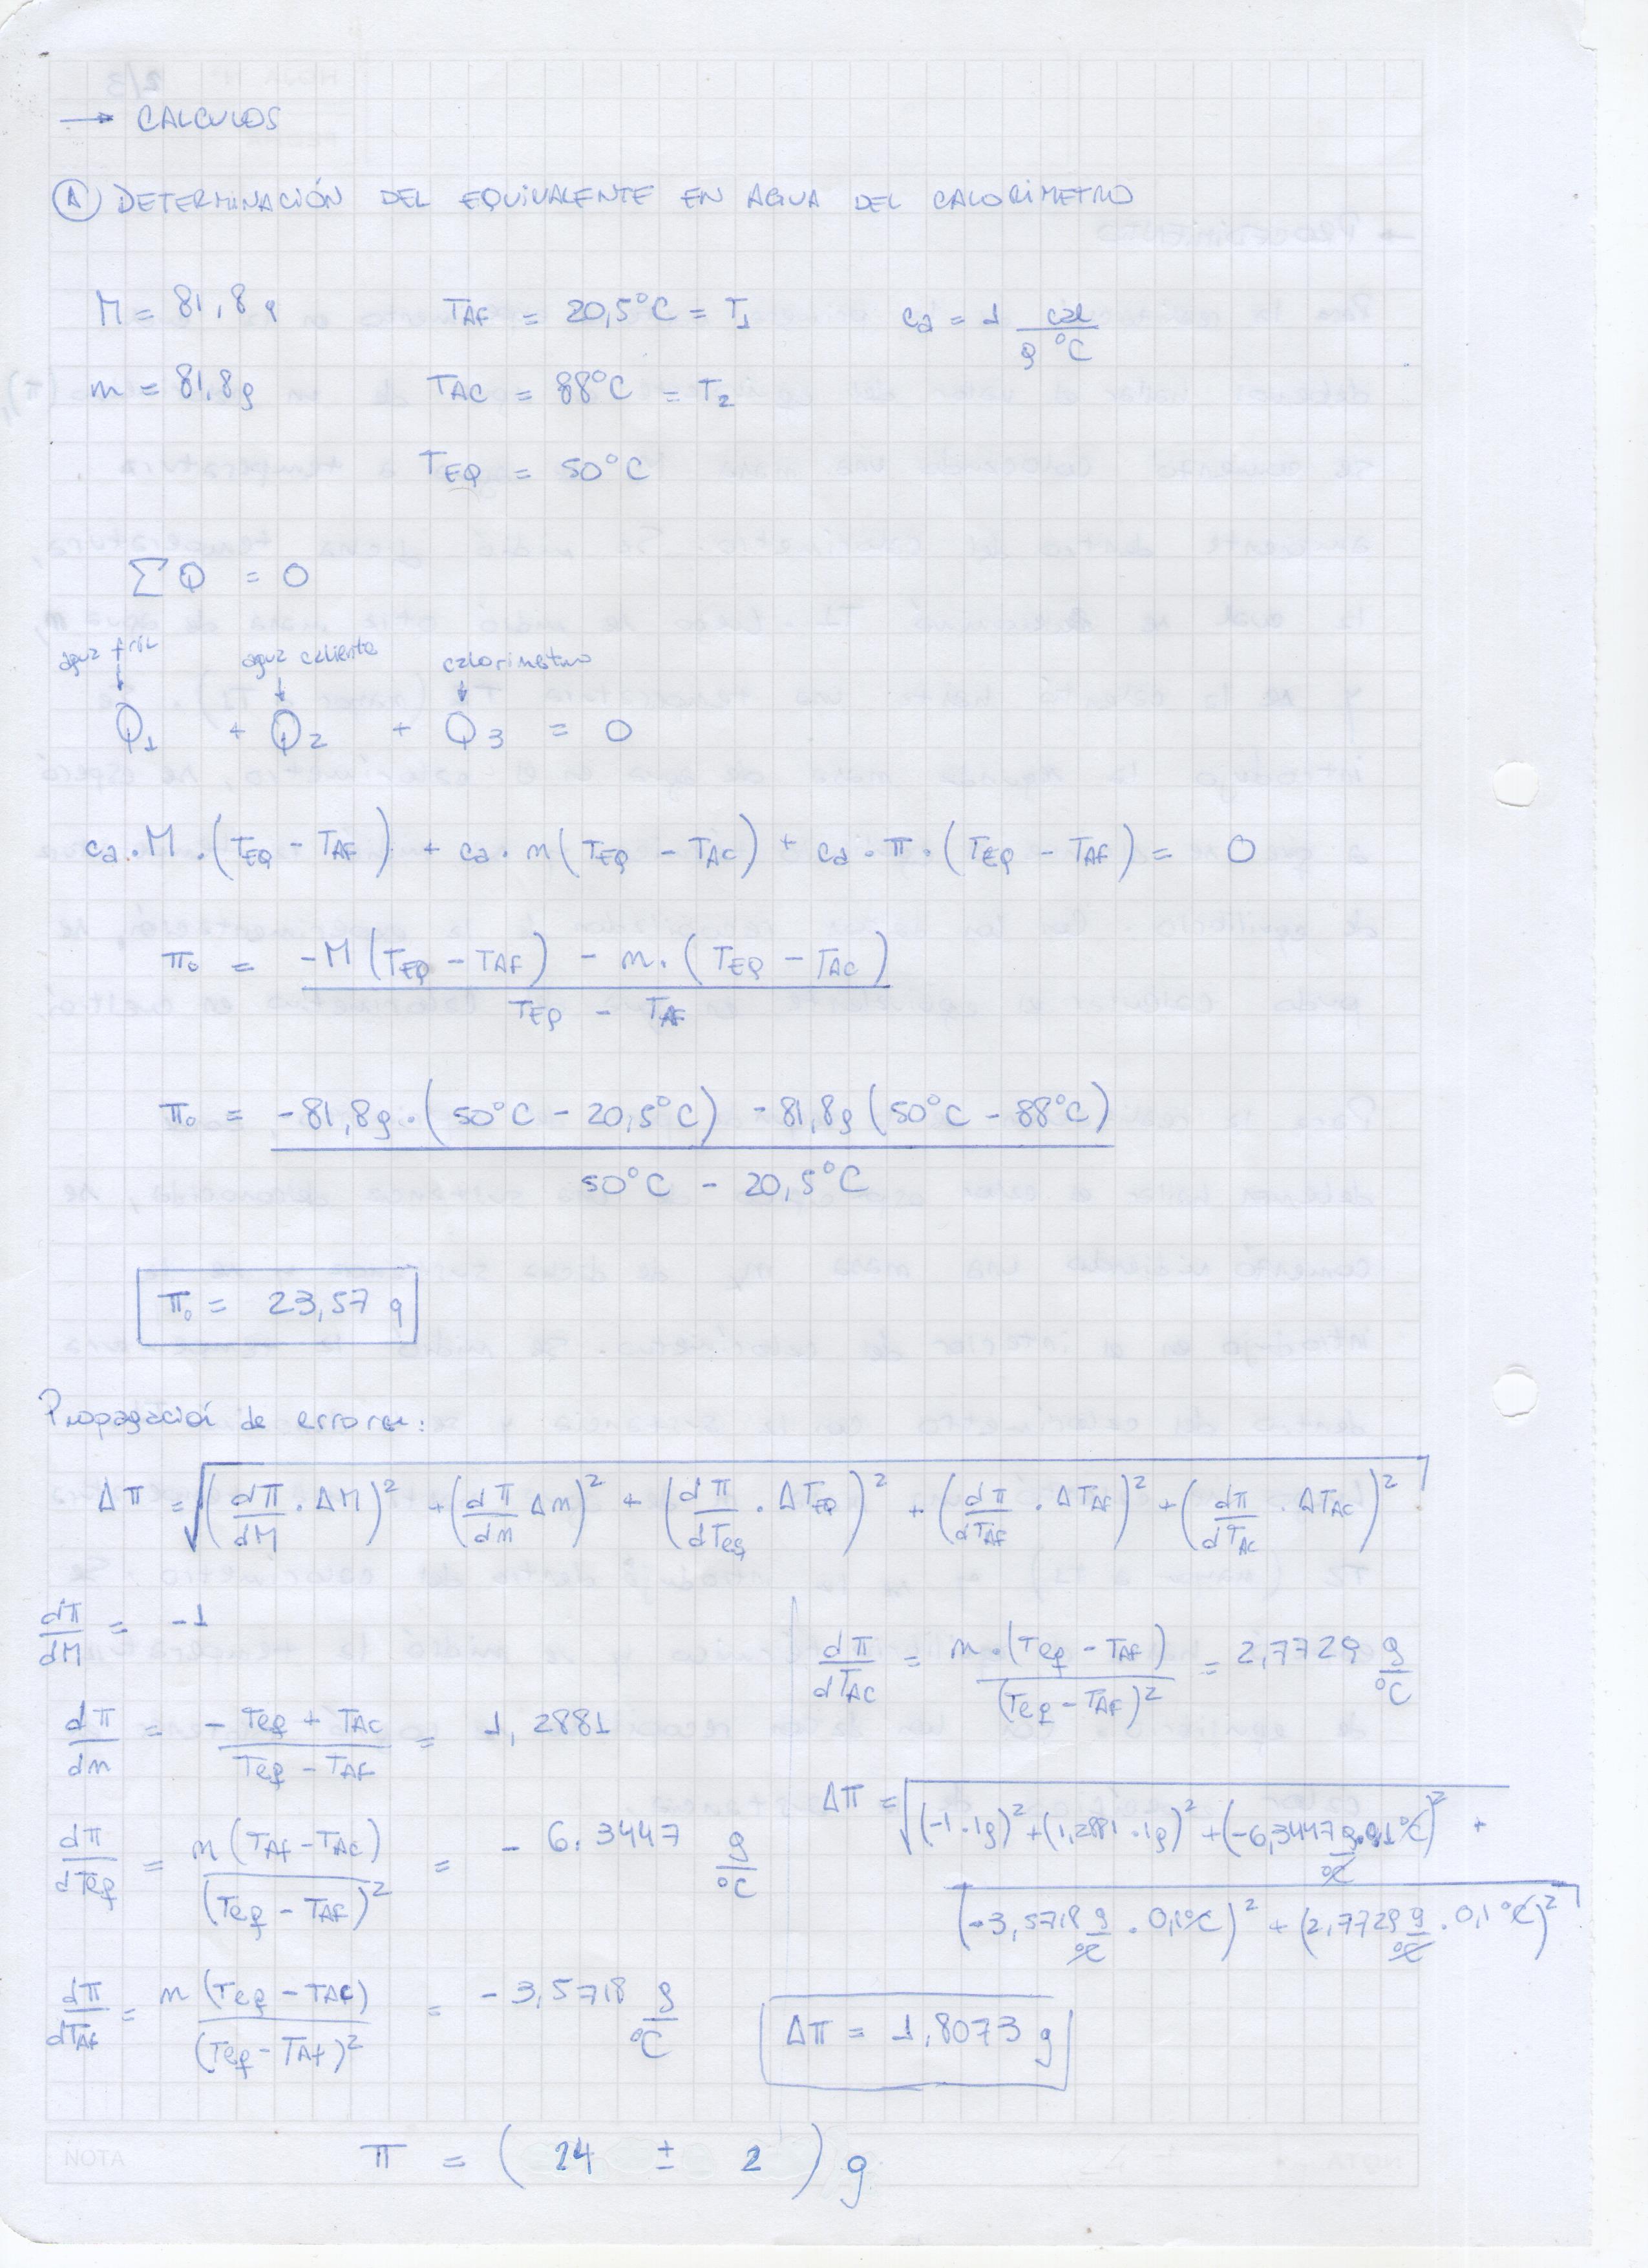 → CALCULOS
Ⓐ DETERMINACIÓN DEL EQUIVALENTE EN AGUA DEL CALORIMETRO
M = 81,8 g   TAF = 20,5°C = T1   ca = 1 cal / g °C
m = 81,8g   TAC = 88°C = T2
TEQ = 50°C
∑Q = 0
agua fría   agua caliente   calorimetro
Q1 + Q2 + Q3 = 0
ca.M.(TEQ - TAF) + ca.m(TEQ - TAC) + ca.π.(TEQ - TAF) = 0
π₀ = (-M(TEQ - TAF) - m.(TEQ - TAC)) / (TEQ - TAF)
π₀ = (-81,8g.(50°C - 20,5°C) - 81,8g(50°C - 88°C)) / (50°C - 20,5°C)
π₀ = 23,57 g
Propagación de errores:
Δπ = √((dπ/dM . ΔM)² + (dπ/dm Δm)² + (dπ/dTeq . ΔTEQ)² + (dπ/dTAF . ΔTAF)² + (dπ/dTAC . ΔTAC)²)
dπ/dM = -1
dπ/dm = (-Teq + TAC) / (Teq - TAF) = 1,2881
dπ/dTeq = m(TAf - TAC) / (Teq - TAF)² = -6.3447 g/°C
dπ/dTAF = m(Teq - TAC) / (Teq - TAf)² = -3,5718 g/°C
dπ/dTAC = m.(Teq - TAF) / (Teq - TAF)² = 2,7729 g/°C
Δπ = √((-1.1g)² + (1,2881.1g)² + (-6,3447 g/°C.0,1°C)² +
(-3,5718 g/°C . 0,1°C)² + (2,7729 g/°C . 0,1°C)²)
Δπ = 1,8073 g
π = (24 ± 2) g